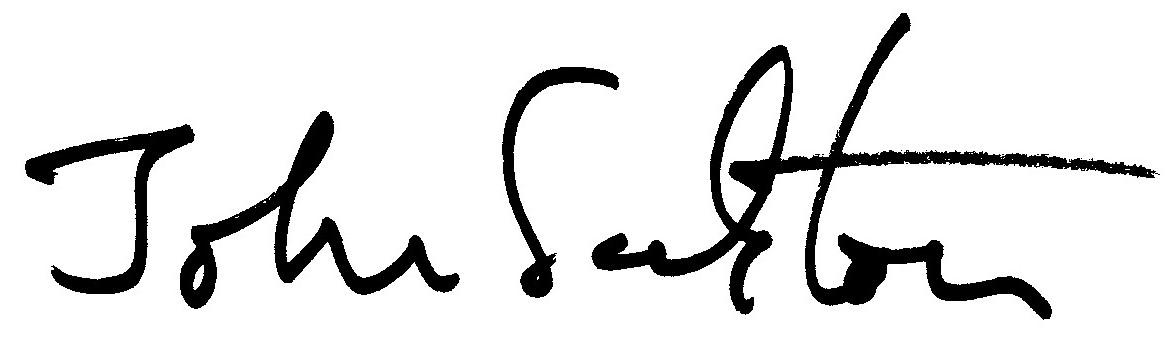 John Sexton